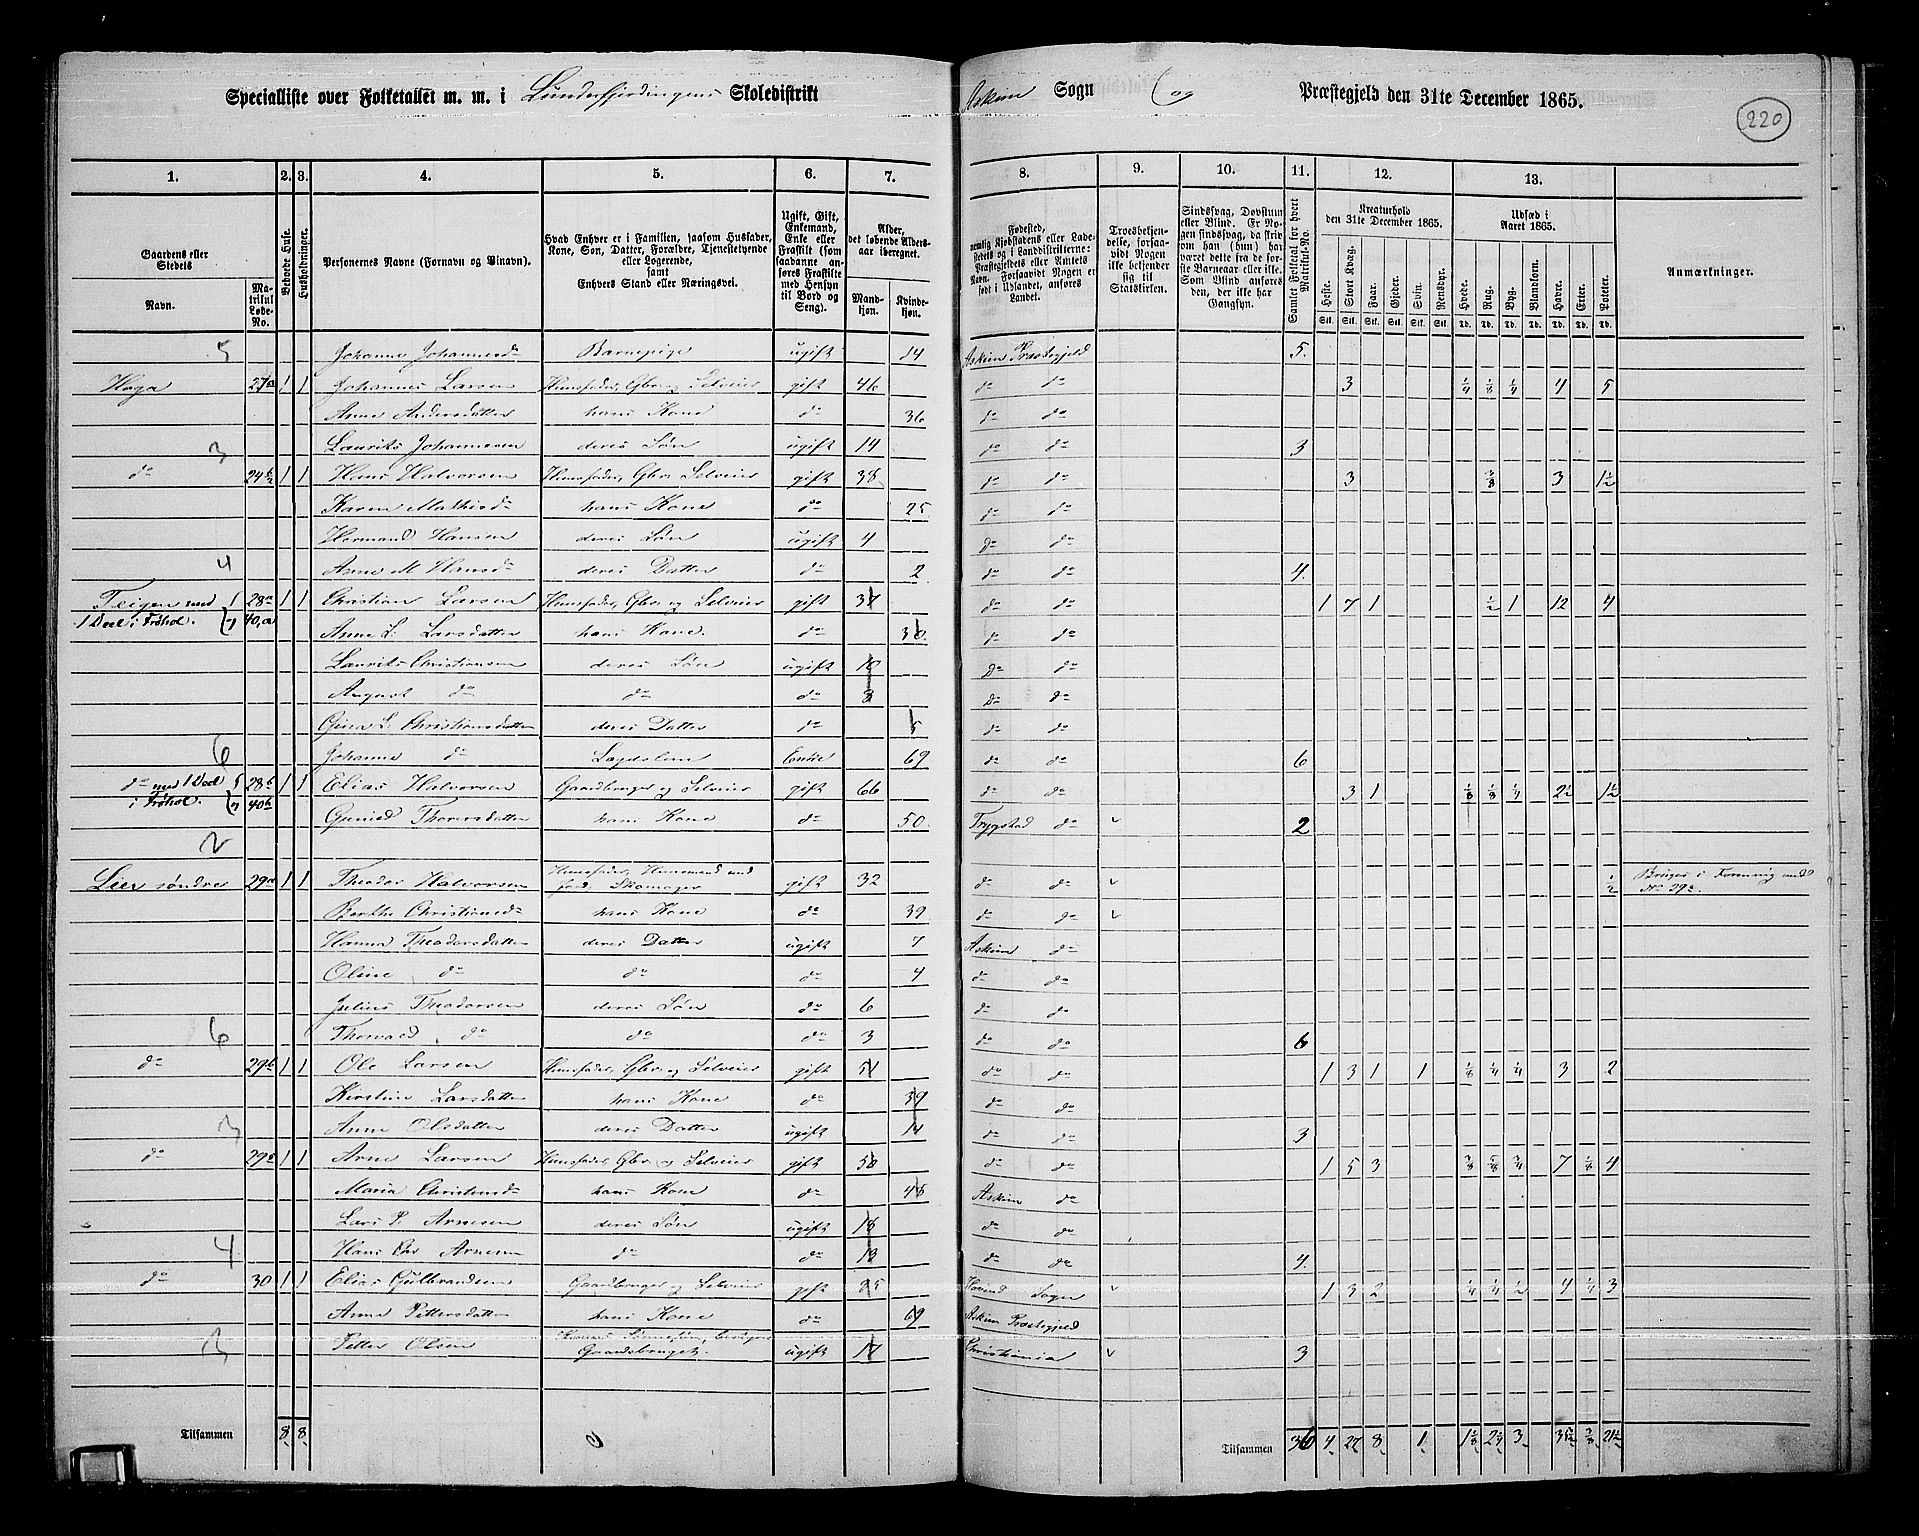 Specialliste over Folketallet m. m. i Lunderfjerdingens Skoledistrikt Askim Sogn og Præstegjeld den 31te December 1865.
220
1. 2. 3. 4. 5. 6. 7. 8. 9. 10. 11. 12. 13.
Gaardens eller Stedets Navn. Matrikul Løbe-No.
Beboede Huse.
Husholdninger.
Personernes Navne (Fornavn og Tilnavn).
Hvad Enhver er i Familien, saasom Husfader, Kone, Søn, Datter, Forældre, Tjenestetyende eller Logerende, samt Enhvers Stand eller Næringsvei.
Ugift, Gift, Enkemand, Enke eller Fraskilt (saadanne anføres Fraskilte med Hensyn til Bord og Seng).
Alder, det løbende Aldersaar iberegnet. Mandkjøn. Kvindekjøn.
Fødested,
Troesbekjendelse, forsaavidt Nogen ikke bekjender sig til Statskirken.
Sindssvag, Døvstum eller Blind.
Samlet Folketal for hvert Matrikul-No.
Kreaturhold den 31te December 1865. Heste. Stort Kvæg. Faar. Gjeder. Svin. Rensdyr.
Udsæd i Aaret 1865. Hvede. Rug. Byg. Blandkorn. Havre. Erter. Poteter.
Anmærkninger.
5 Johanne Johannesdr Barnepige ugift 14 Askim Præstegjeld 5.
Haga 27a 1 1 Johannes Larsen Huusfader, Gbr. og Selveier gift 46 do do 3 1/4 1/8 1/4 4 5
Anne Andersdatter hans Kone do 36 do do
3 Laurits Johannesen deres Søn ugift 14 do do 3
do 24b 1 1 Hans Halvorsen Huusfader, Gbr. Selveier gift 38 do do 3 3/8 3 1 1/2
Karen Mathisdr hans Kone do 25 do do
Hermand Hansen deres Søn ugift 4 do do
4 Anne M Hansdr deres Datter do 2 do do 4.
Teigen med 28a 1 1 Christian Larsen Huusfader, Gbr. og Selveier gift 37 do do 1 7 1 1/2 1 12 4
1 Deel i Frøhol. 40,a Anne L. Larsdatter hans Kone. do 30 do do
Laurits Christiansen deres Søn ugift 10 do do
August do do do 3 do do
Gina L. Christiansdatter deres Datter do 5 do do
6 Johanne do Enke 69 do do 6
do med 1 Deel 28b 1 1 Elias Halvorsen Gaardbruger og Selveier gift 66 do do 3 1 1/8 1/8 1/4 2 1/2 1 1/2
i Frøhol. 40b Gunild Thorersdatter hans Kone do 50 Trygstad do 2
2
Leier søndre 29a 1 1 Theodor Halvorsen Huusfader, Huusmand med Jord, Skomager gift 32 do do 1/2 Bruges i Forening med No 29c.
Berthe Christiansdr hans Kone do 39 do do
Hanna Theodorsdatter deres Datter ugift 7 Askim do
Oline do do do 4 do do
Julius Theodorsen deres Søn do 6 do do
6 Thorvald do do do 3 do do 6
do 29b 1 1 Ole Larsen Huusfader, Gbr. og Selveier gift 51 do do 1 3 1 1 1/8 1/4 1/4 3 2
Kirstine Larsdatter hans Kone do 39 do do
3 Anne Olsdatter deres Datter ugift 14 do do 3
do 29c 1 1 Arne Larsen Huusfader, Gbr. og Selveier gift 50 do do 1 5 3 3/8 5/8 3/4 7 1/8 4
Maria Christensdr hans Kone do 48 Askim do
Lars P. Arnesen deres Søn ugift 18 do do
4 Hans Chr Arnesen do do 13 do do 4.
do 30 1 1 Elias Gulbrandsen Gaardbruger og Selveier gift 25 Hovind Sogn 1 3 2 1/4 1/4 1/2 4 1/4 3
Anne Pettersdatter hans Kone do 69 Askim Præstegjeld
3 Petter Olsen Konens Sønnesøn, bestyrer Gaardsbruget. ugift 17 Christiania 3
Tilsammen 8 8 Tilsammen 36 4 27 8 1 1 1/8 2 1/4 3 35 1/2 3/8 21 1/2